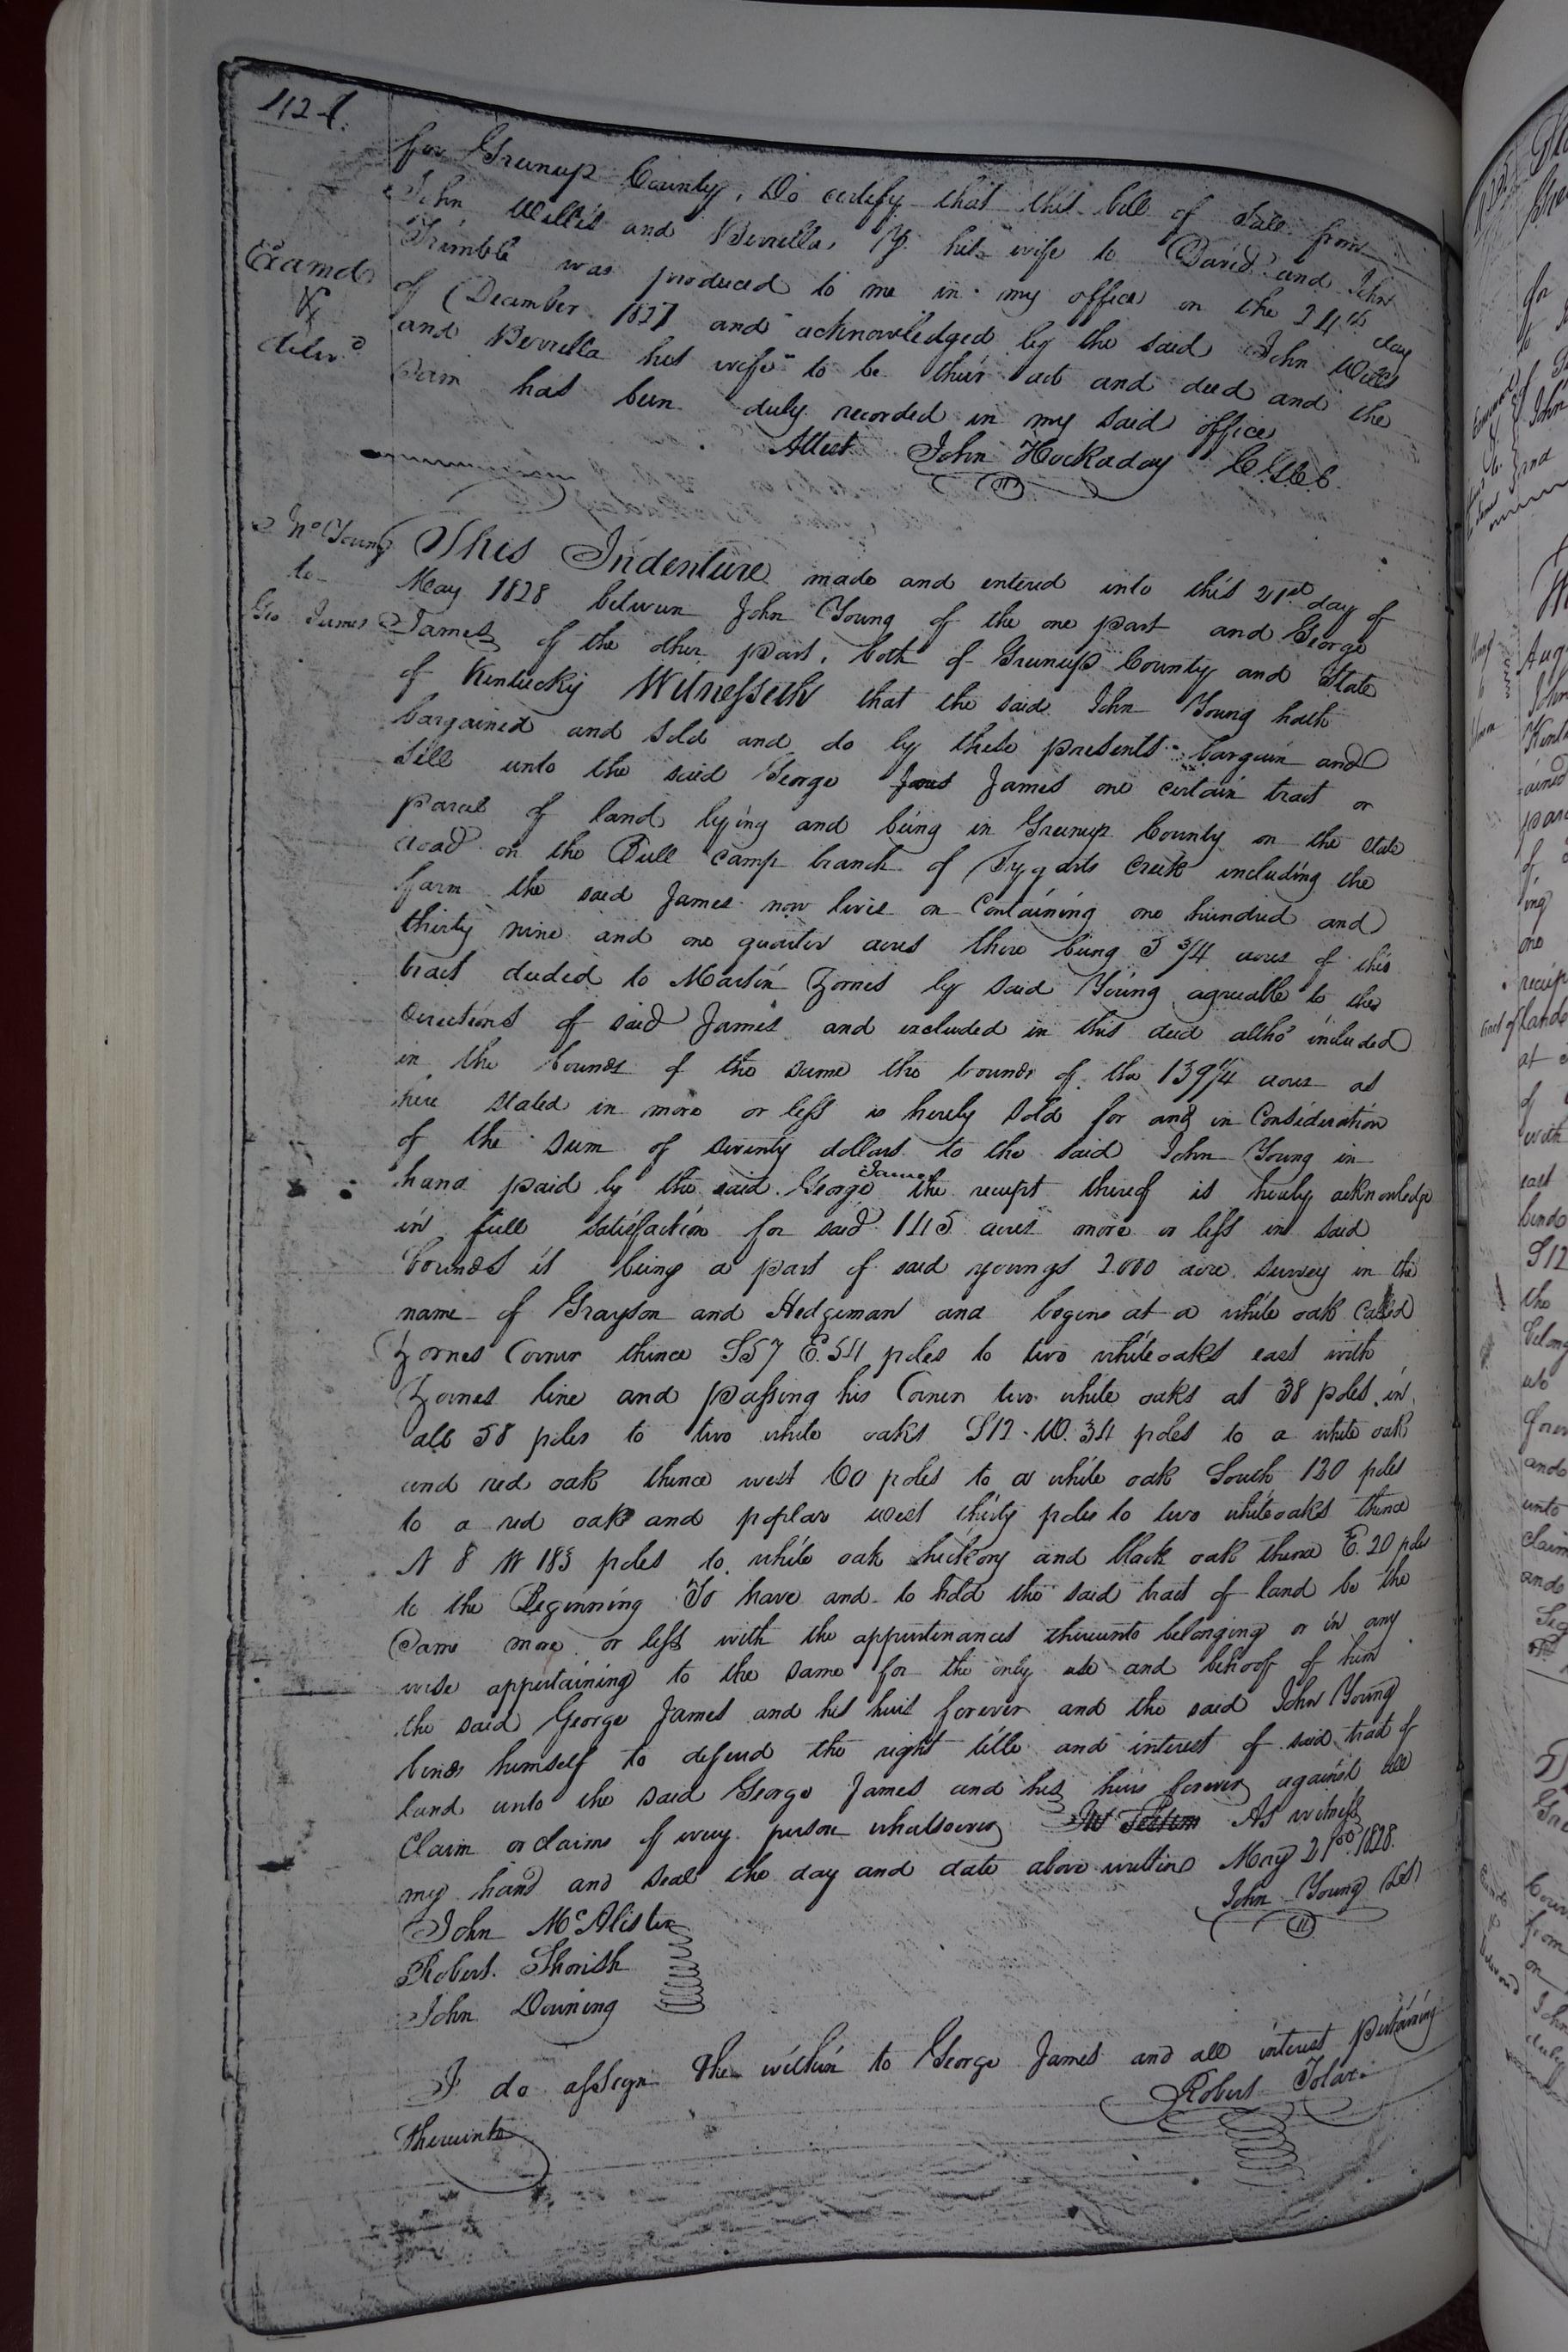 for Greenup County, Do certify that this bill of Sale from
John Willis and Berrella Y. his wife to David and John
Trimble was produced to me in my office on the 24th day
Examd
&
delivd
of December 1827 and acknowledged by the said John Willis
and Berrella his wife to be their act and deed and the
Sam has been duly recorded in my said office
Attest John Hockaday C.G.C.C.
Jno Young
to
Geo James
This Indenture made and entered into this 21st day of
May 1828 between John Young of the one part and George
James of the other part, both of Greenup County and State
of Kentucky Witnesseth that the said John Young hath
bargained and sold and do by these presents bargain and
Sell unto the said George James one certain tract or
parcel of land lying and being in Greenup County on the state
road on the Bull camp branch of Tygarts Creek including the
farm the said James now lives on Containing one hundred and
thirty nine and one quarter acres there being 5 3/4 acres of this
tract deeded to Martin Zornes by said Young agreable to the
directions of said James and excluded in this deed altho' included
in the bounds of the same the bounds of the 139 1/4 acres as
here stated in more or less is hereby sold for and in Consideration
of the sum of seventy dollars to the said John Young in
hand paid by the said George James the receipt thereof is hereby acknowledge
in full satisfaction for said 145 acres more or less in said
bounds it being a part of said youngs 2.000 acre survey in the
name of Grayson and Hedgeman and begins at a white oak called
Zornes Corner thence S57 E.54 poles to two white oaks east with
Zornes line and passing his Corner two white oaks at 38 poles in
all 58 poles to two white oaks S12 W. 34 poles to a white oak
and red oak thence west 60 poles to a white oak South 120 poles
to a red oak and poplar west thirty poles to two white oaks thence
N 8 W 183 poles to white oak hickory and black oak thence E. 20 poles
to the Beginning To have and to hold the said tract of land be the
Same more or less with the appurtenances thereunto belonging or in any
wise appertaining to the same for the only use and behoof of him
the said George James and his heirs forever and the said John Young
binds himself to defend the right title and interest of said tract of
land unto the said George James and his heirs forever against all
Claim or claims of every person whatsoever As witness
my hand and seal the day and date above written May 21st 1828.
John Young (LS)
John McAlister
Robert Shorish
John Downing
I do assign the within to George James and all interest pertaining
thereunto
Robert Tolar